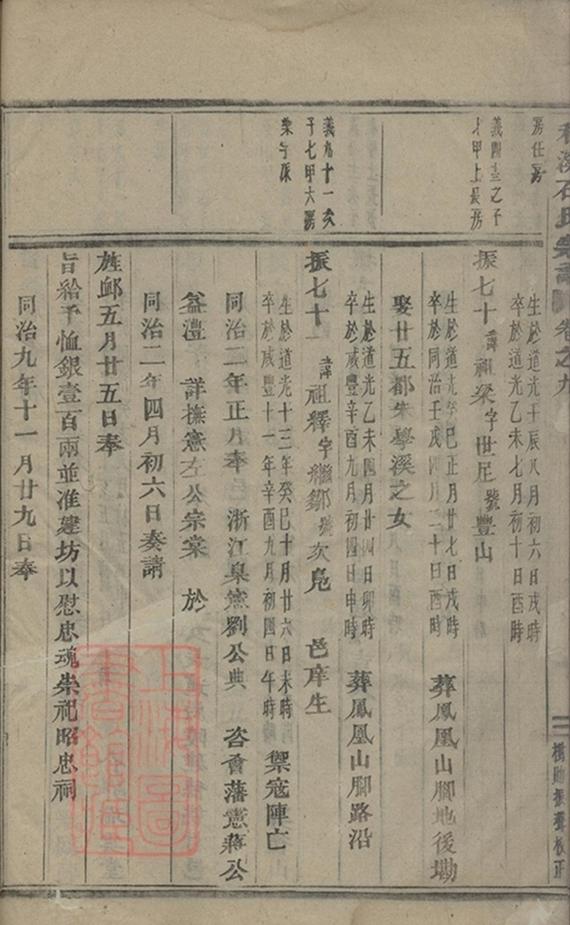 石氏宗譜 卷之九
橋助振聲校正
房仕房
生於道光壬辰八月初六日戌時
卒於道光乙未七月初十日酉時
義四十之子
才甲上長房
振七十 諱祖梁字世足號豐山
生於道光癸巳正月廿七日戌時
卒於同治壬戌四月二十日酉時 葬鳳凰山腳地後塝
娶廿五都朱學溪之女
生於道光乙未四月廿四日卯時
卒於咸豐辛酉九月初四日申時 葬鳳凰山腳路沿
義九十一次
子七甲六房
振七十一 諱祖釋字繼鄒號次凫 邑庠生
生於道光十三年癸巳十月廿六日未時
卒於咸豐十一年辛酉九月初四日午時 禦寇陣亡
同治二年正月奉 浙江臬憲劉公典 咨會藩憲蔣公
益澧 詳撫憲左公宗棠 於
同治二年四月初六日奏請
旌邮五月廿五日奉
旨給予恤銀壹百兩並准建坊以慰忠魂崇祀昭忠祠
同治九年十一月廿九日奉
上海圖
書館藏